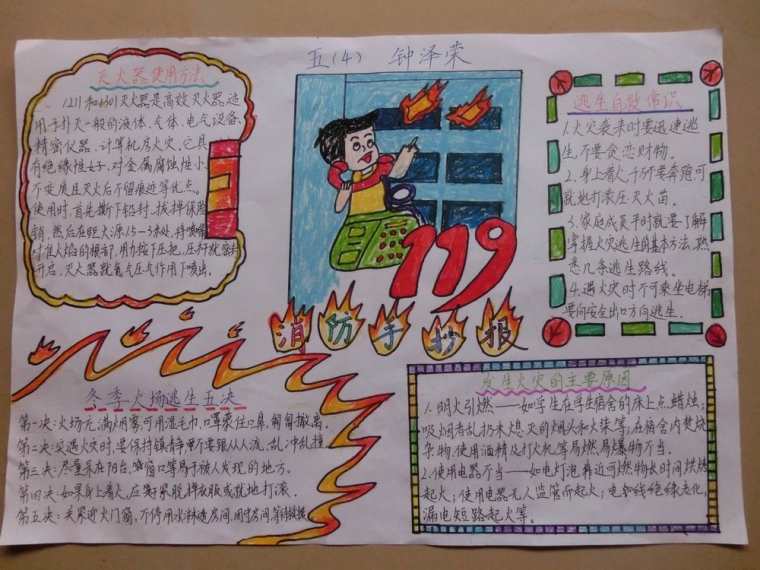 五(4) 钟泽荣
灭火器使用方法
1211和1301灭火器是高效灭火器,适
用于扑灭一般的液体、气体、电气设备、
精密仪器、计算机房火灾。它具
有绝缘性好、对金属腐蚀性小、
不变质且灭火后不留痕迹等优点。
使用时,首先撕下铅封,拔掉保险
销,然后在距火源1.5-3米处,将喷嘴
对准火焰的根部,用力按下压把,压杆就
开启,灭火器就氮气压气作用下喷出。
119
消防手抄报
逃生自救常识
1.火灾袭来时要迅速逃
生,不要贪恋财物。
2.身上着火,千万不要奔跑,可
就地打滚压灭火苗。
3.家庭成员平时就要了解
掌握火灾逃生的基本方法,熟
悉几条逃生路线。
4.遇火灾时不可乘坐电梯,
要向安全出口方向逃生。
冬季火场逃生五决
第一决:火场充满烟雾,可用湿毛巾、口罩蒙住口鼻,匍匐撤离。
第二决:突遇火灾时,要保持镇静,不要跟从人流、乱冲乱撞。
第三决:尽量呆在阳台、窗口等易于被人发现的地方。
第四决:如果身上着火,应赶紧脱掉衣服或就地打滚。
第五决:关紧迎火门窗,不停用水淋透房间,固守房间,等待救援。
发生火灾的主要原因
1.明火引燃——如学生在学生宿舍的床上点蜡烛;
吸烟者乱扔未熄灭的烟头和火柴等;在宿舍内焚烧
杂物,使用酒精及打火机等易燃、易爆物不当。
2.使用电器不当——如电灯泡靠近可燃物长时间烘烤
起火;使用电器无人监管而起火;电线绝缘老化,
漏电短路起火等。